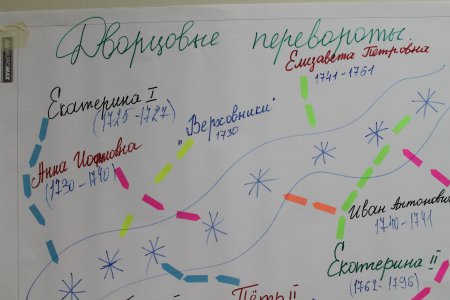 Дворцовые перевороты
Елизавета Петровна
1741-1761
Екатерина I
(1725-1727)
"Верховники"
1730
Анна Иоанновна
(1730-1740)
Иван Антонович
1740-1741
Екатерина II
(1762-1796)
Пётр II